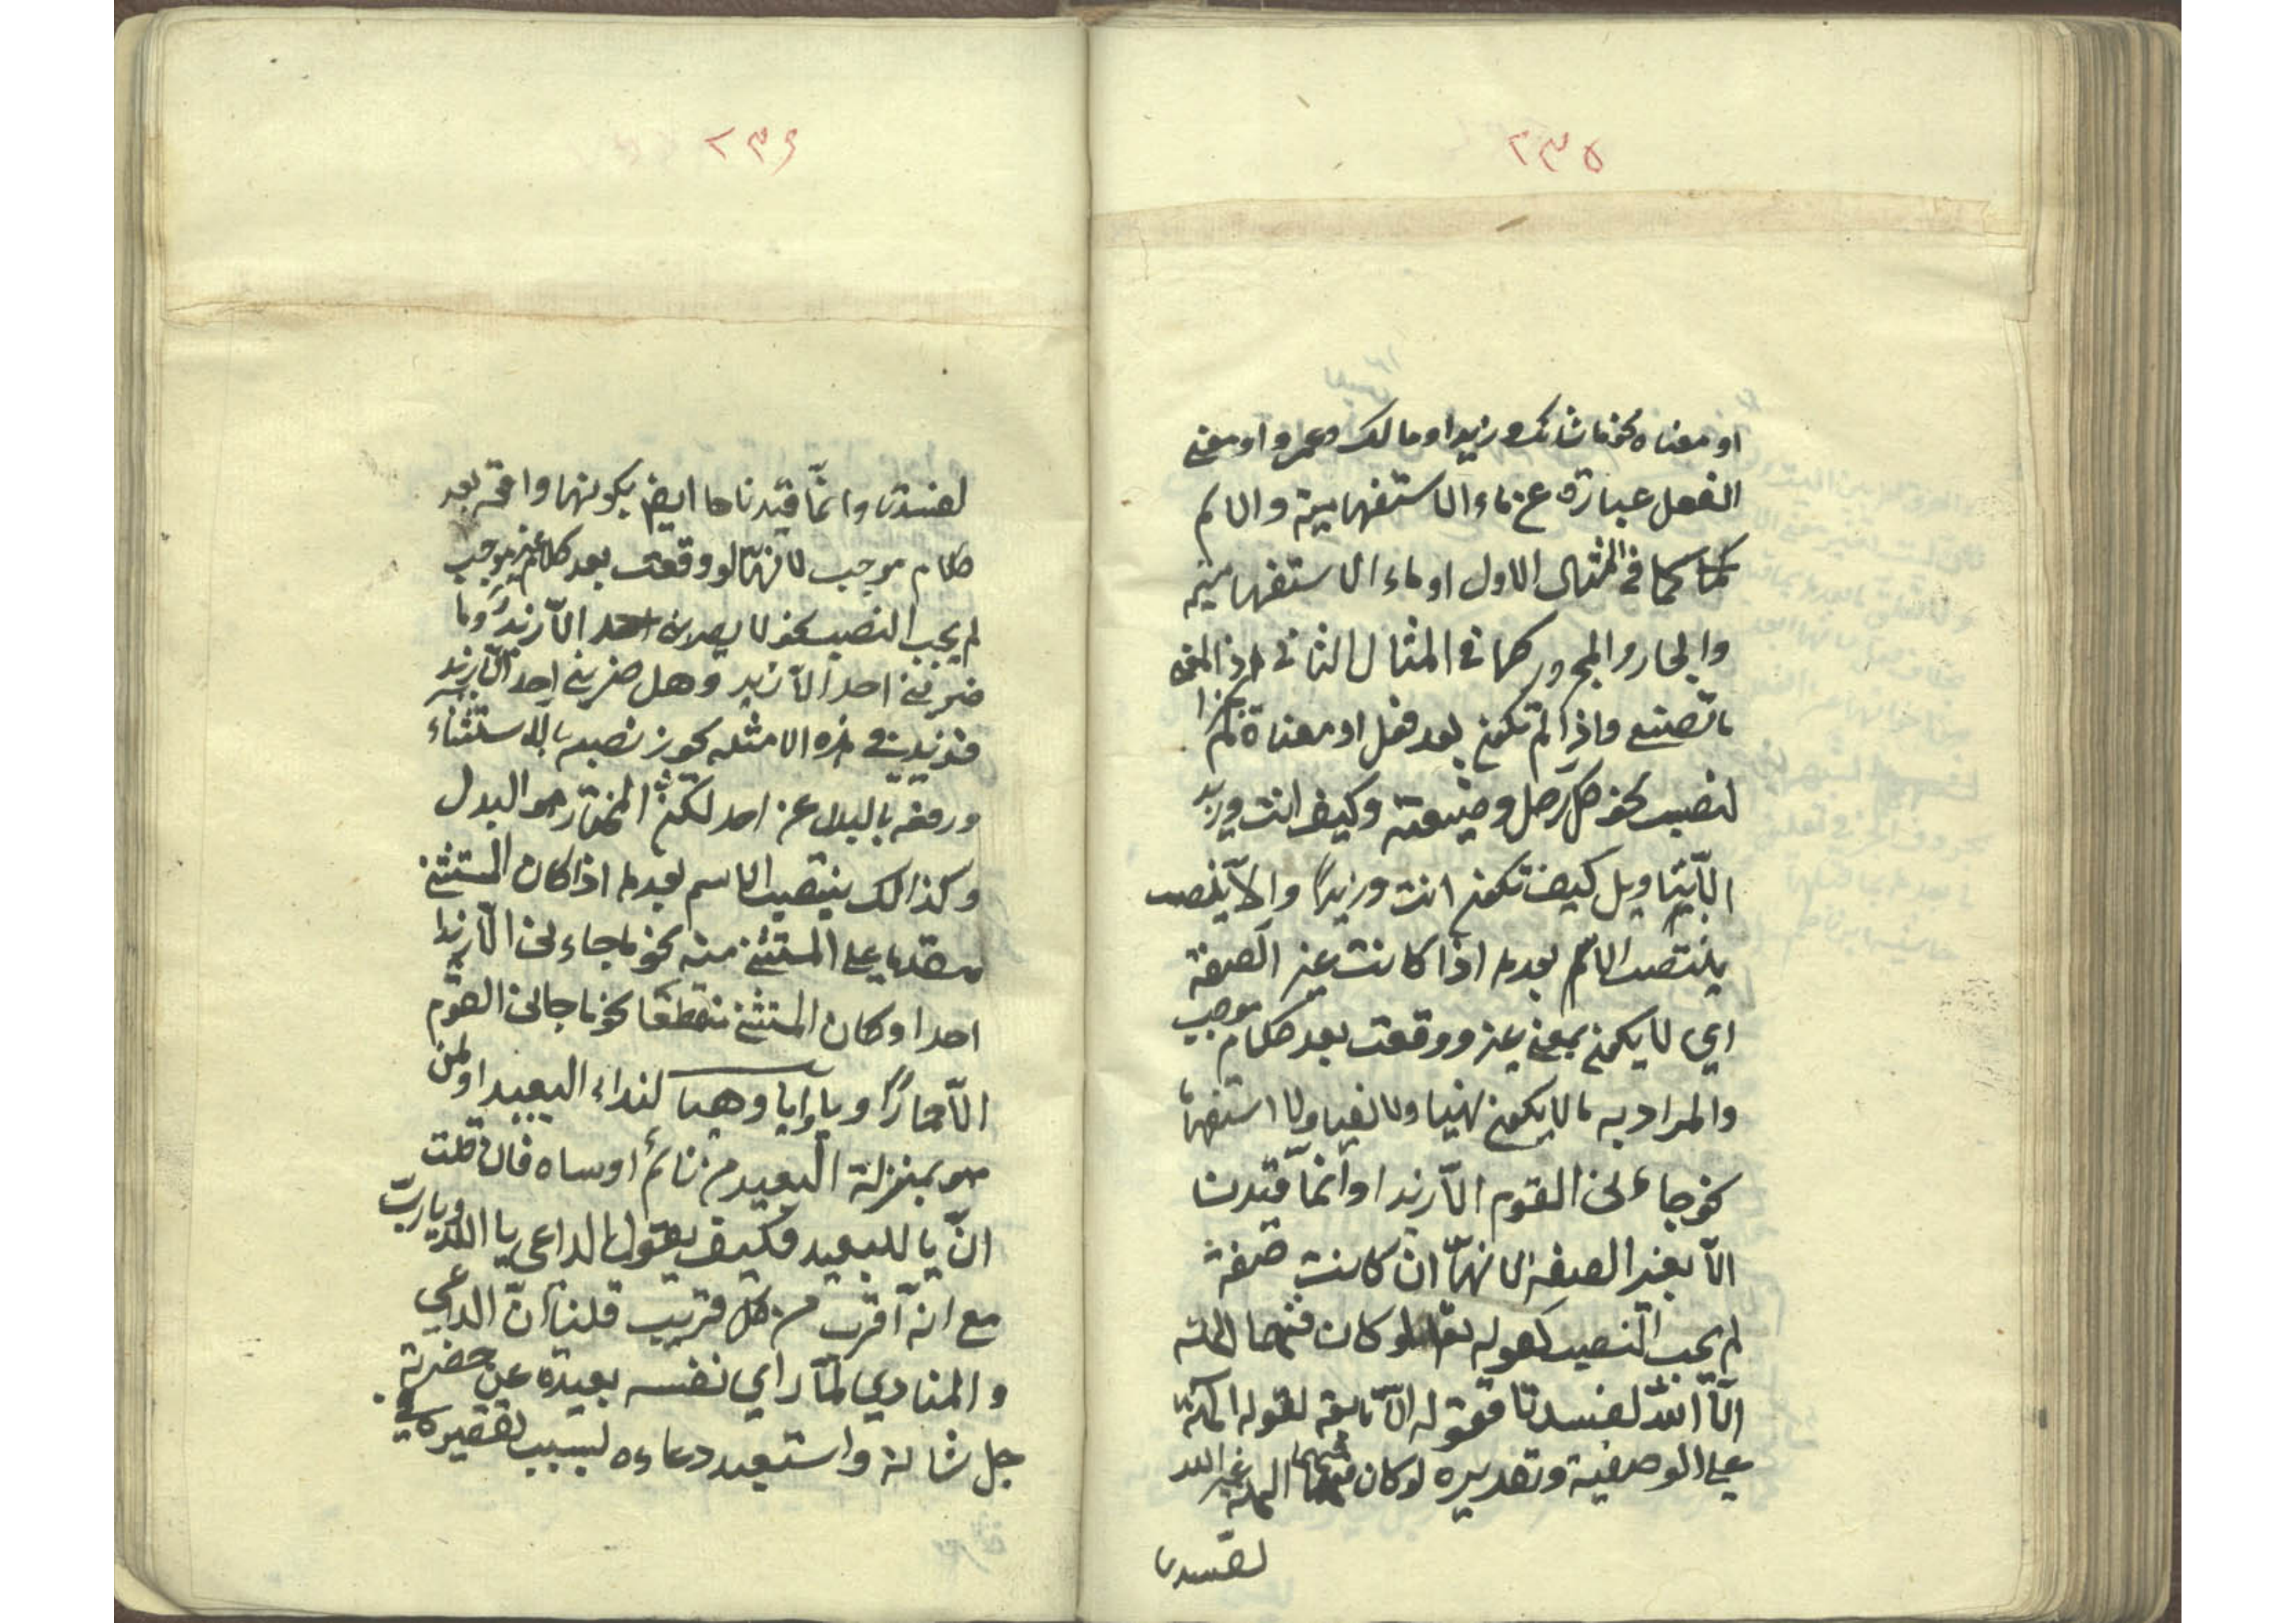 ٢٣٥
او معناه نحو ما شانك وزيدا ومالك وعمروا ومعنى
الفعل عبارة عن ماء الاستفهامية والاسم
كما في المثال الاول او ماء الاستفهامية
والجار والمجرور كما في المثال الثاني اذ المعنى
ما تصنع واذا لم تكن بعد فعل او معناه لم
لنصب نحو كل رجل وضيعته وكيف انت وزيد
الا بتاويل كيف تكون انت وزيدا والا ينصب
ينتصب الاسم بعدها اذا كانت غير الصفة
اي لا يكون بمعنى غير ووقعت بعد كلام موجب
والمراد به ما لا يكون نهيا ولا نفيا ولا استفهاما
نحو جاءنى القوم الا زيدا وانما قيدنا
الا بغير الصفة لانها ان كانت صفة
لم يجب النصب كقوله تعا لو كان فيهما الهة
الا الله لفسدتا فقوله الا تابعة لقوله الهة
على الوصفية وتقديره لو كان فيهما الهة غير الله
لفسدتا
٢٣٦
لفسدتا وانما قيدناها ايضا بكونها واقعة بعد
كلام موجب لانها لو وقعت بعد كلام غير موجب
لم يجب النصب نحو لا يضربن احد الا زيد وما
ضربنى احد الا زيد وهل ضربنى احد الا زيد
فزيد فى هذه الامثلة يجوز نصبه بالاستثناء
ورفعه بالبدل عن احد لكن المختار هو البدل
وكذالك ينتصب الاسم بعدها اذا كان المستثنى
مقدما على المستثنى منه نحو ما جاءنى الا زيدا
احد او كان المستثنى منقطعا نحو ما جانى القوم
الا حمارا ويا وايا وهيا لنداء البعيد او لمن
هو بمنزلة البعيد من نائم او ساه فان قلت
ان يا للبعيد فكيف يقول الداعى يا الله ويا رب
مع انه اقرب من كل قريب قلنا ان الداعي
والمنادي لما راي نفسه بعيدة عن حضرته
جل شانه واستبعد دعاءه بسبب تقصيره في